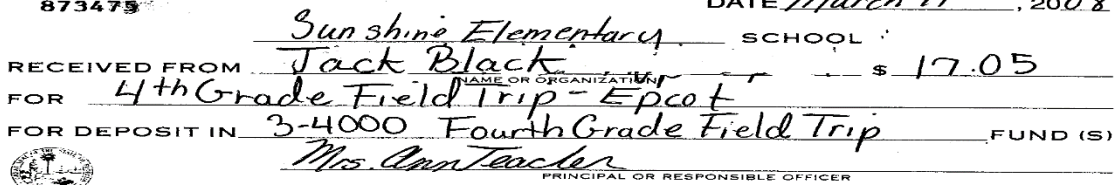 873475 DATE March 11, 2008
Sunshine Elementary SCHOOL
RECEIVED FROM Jack Black $ 17.05
NAME OR ORGANIZATION
FOR 4th Grade Field Trip - Epcot
FOR DEPOSIT IN 3-4000 Fourth Grade Field Trip FUND (S)
Mrs. Ann Teacher
PRINCIPAL OR RESPONSIBLE OFFICER